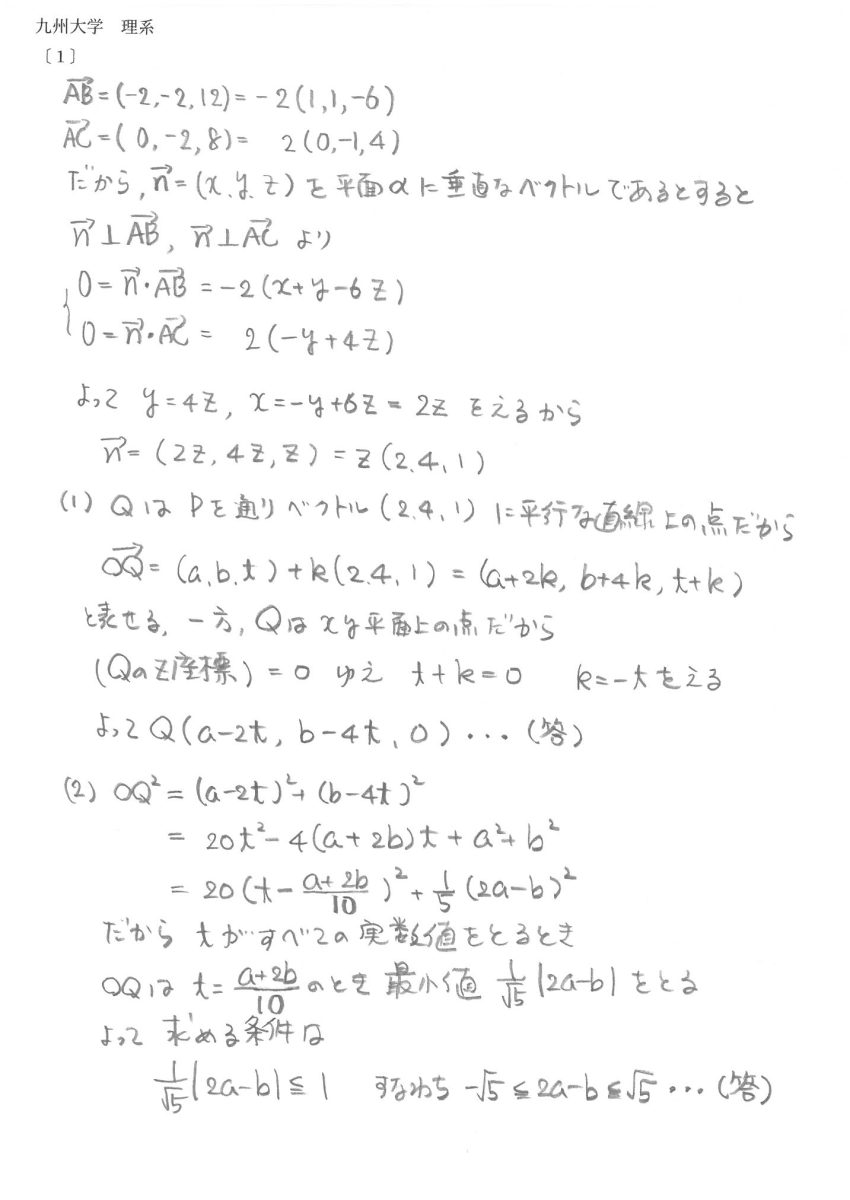 九州大学 理系
〔1〕
$\overrightarrow{AB}=(-2,-2,12)=-2(1,1,-6)$
$\overrightarrow{AC}=(0,-2,8)=2(0,-1,4)$
だから, $\vec{n}=(x,y,z)$ を平面αに垂直なベクトルであるとすると
$\vec{n}⊥\overrightarrow{AB}$, $\vec{n}⊥\overrightarrow{AC}$ より
{ $0=\vec{n}・\overrightarrow{AB}=-2(x+y-6z)$
$0=\vec{n}・\overrightarrow{AC}=2(-y+4z)$
よって $y=4z$, $x=-y+6z=2z$ をえるから
$\vec{n}=(2z,4z,z)=z(2,4,1)$
(1) QはPを通りベクトル(2,4,1)に平行な直線上の点だから
$\overrightarrow{OQ}=(a,b,t)+k(2,4,1)=(a+2k, b+4k, t+k)$
と表せる, 一方, Qはxy平面上の点だから
(Qのz座標)=0 ゆえ t+k=0 k=-tをえる
よって Q(a-2t, b-4t, 0)・・・(答)
(2) $OQ^2=(a-2t)^2+(b-4t)^2$
$=20t^2-4(a+2b)t+a^2+b^2$
$=20(t-\frac{a+2b}{10})^2+\frac{1}{5}(2a-b)^2$
だから tがすべての実数値をとるとき
OQは $t=\frac{a+2b}{10}$ のとき 最小値 $\frac{1}{\sqrt{5}}|2a-b|$ をとる
よって 求める条件は
$\frac{1}{\sqrt{5}}|2a-b|≦1$ すなわち $-\sqrt{5}≦2a-b≦\sqrt{5}$・・・(答)